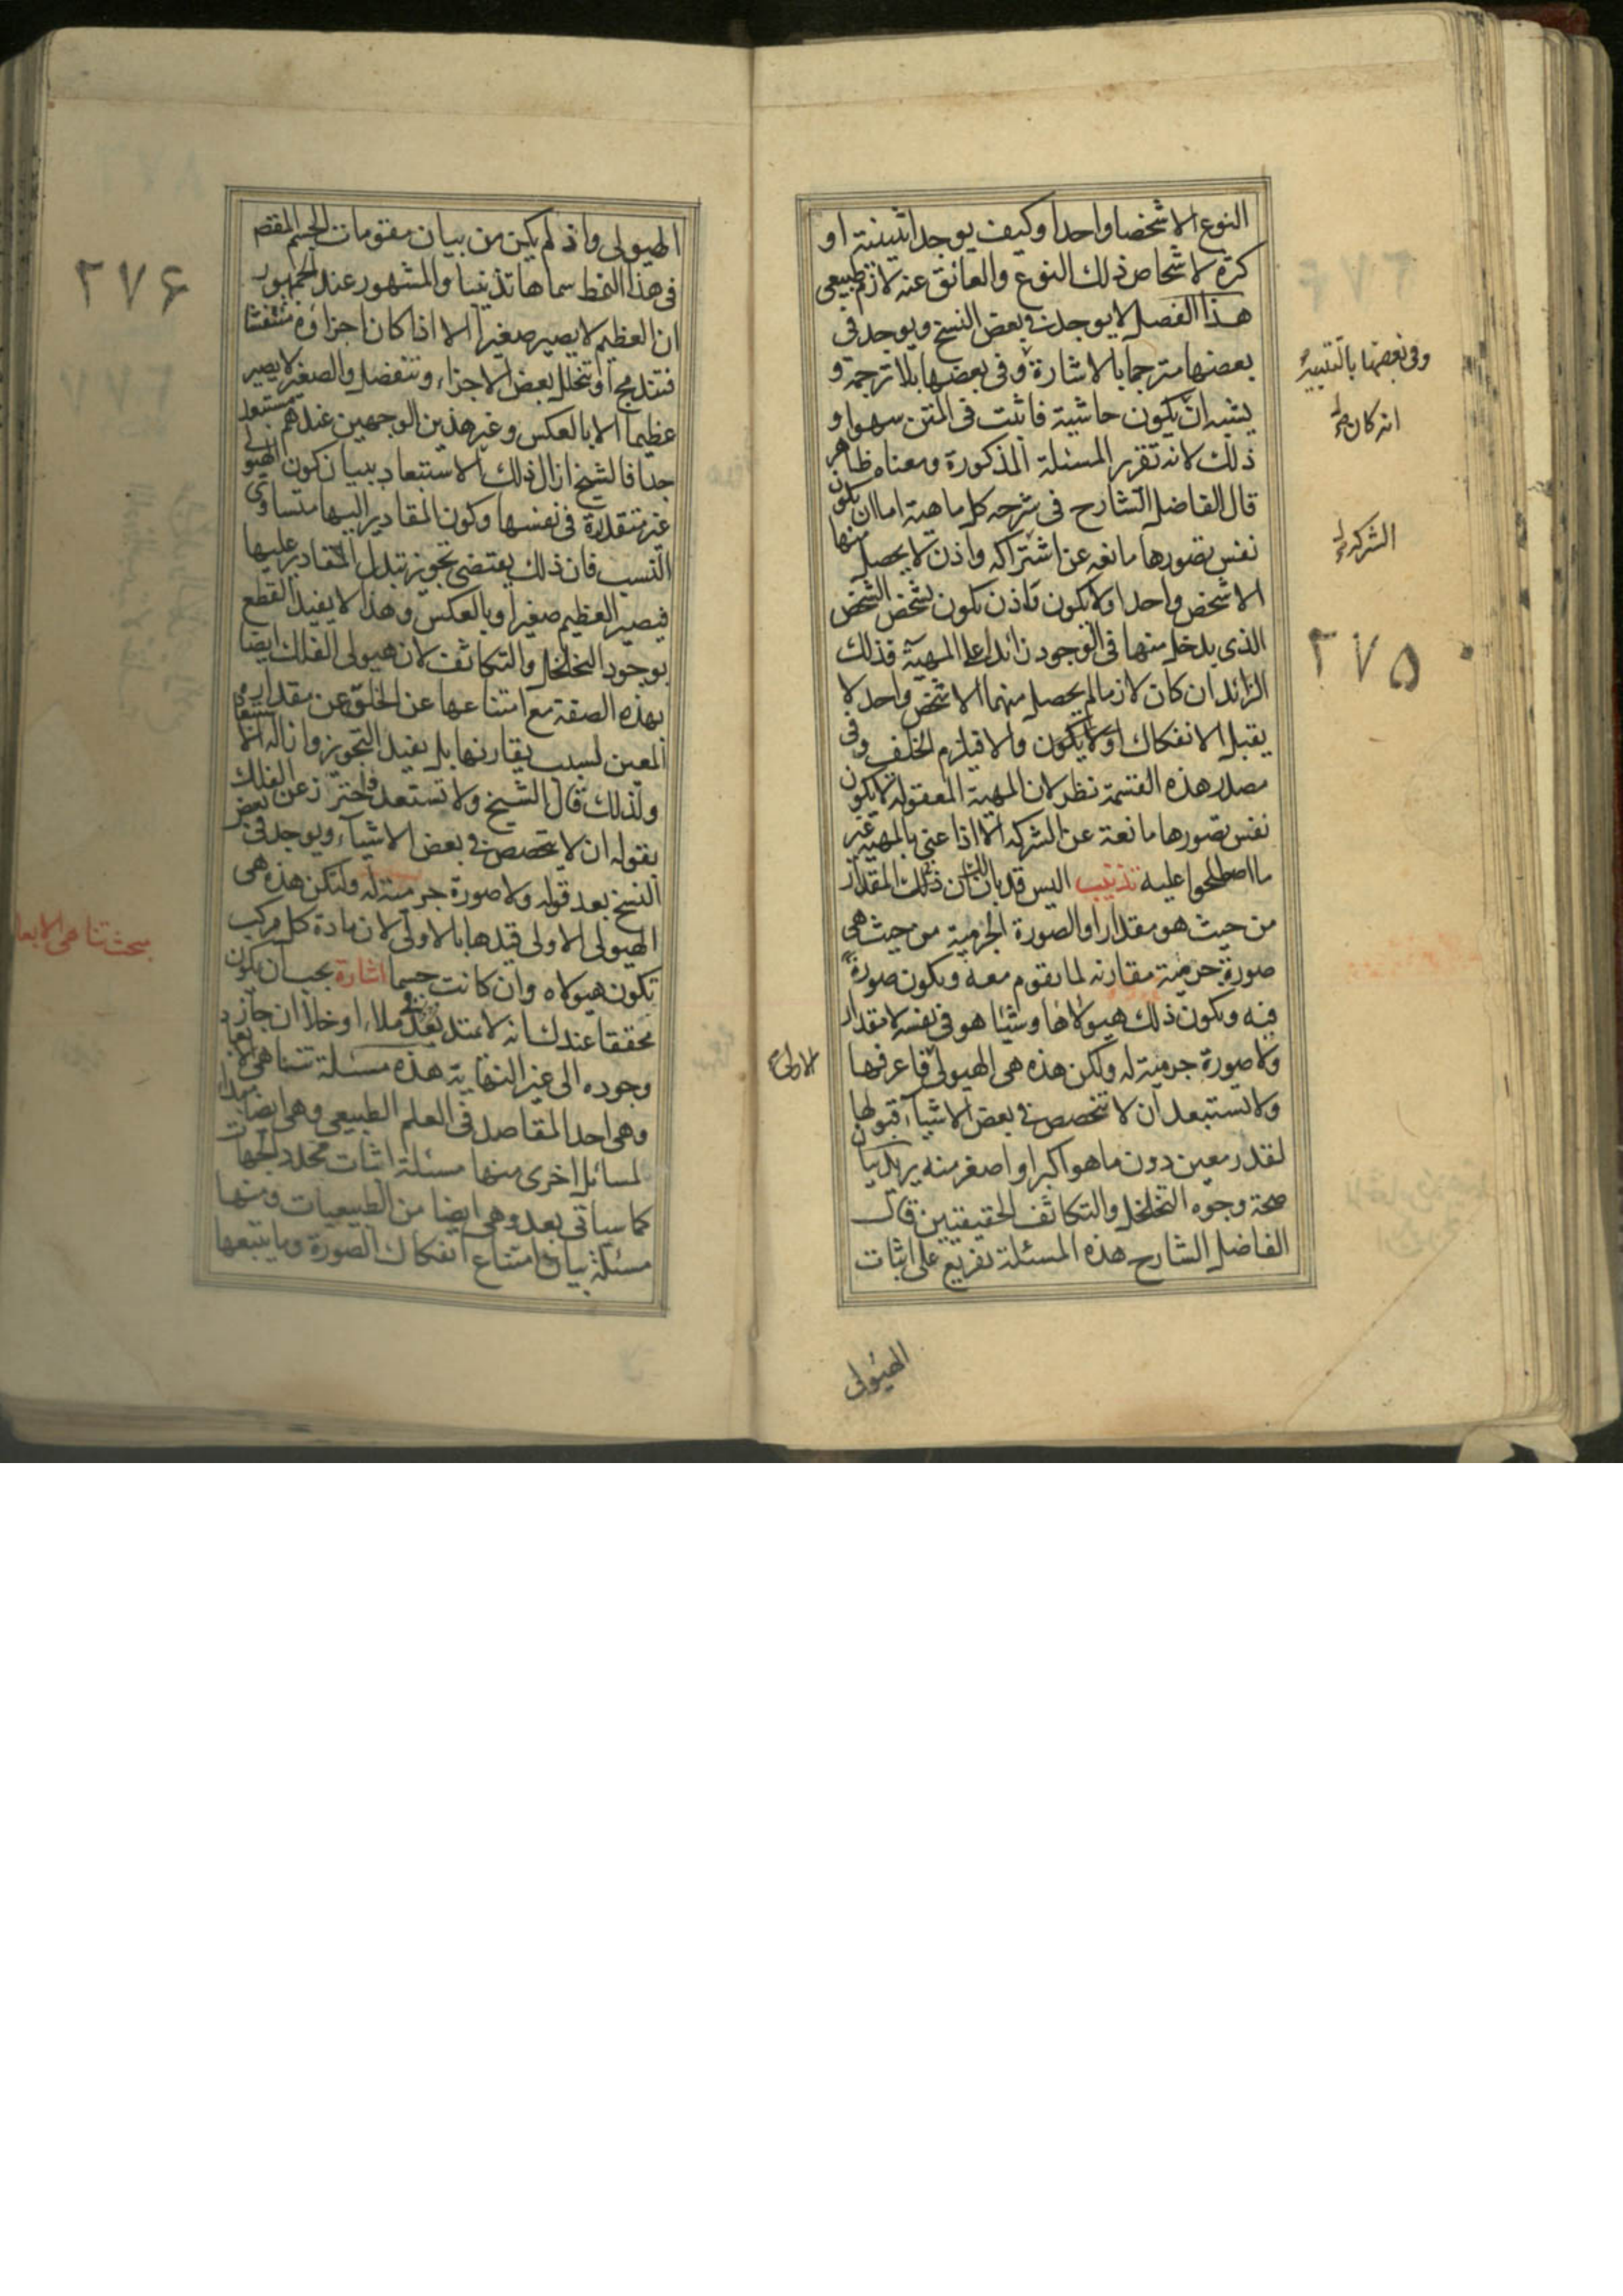 النوع الا شخصا واحدا وكيف يوجد اثنينية او
كثرة لاشخاص ذلك النوع والعائق عنه لازم طبيعى
هذا الفصل لا يوجد فى بعض النسخ ويوجد فى
بعضها مترجما بالاشارة وفى بعضها بلا ترجمة و
يشبه ان يكون حاشية فاثبت فى المتن سهوا و
ذلك لانه تقرير المسئلة المذكورة ومعناه ظاهر
قال الفاضل الشارح فى شرحه كل ماهية اما ان يكون
نفس تصورها مانعه عن اشتراكه واذن لا يحصل منها
الا شخص واحد او لا يكون فاذن يكون تشخص الشخص
الذى يدخل منها فى الوجود زائدا على المهية فذلك
الزائد ان كان لازما لم يحصل منهما الا شخص واحد لا
يقبل الانفكاك او لا يكون والا فيلزم الخلف وفى
مصدر هذه القسمة نظر لان المهية المعقوله لا يكون
نفس تصورها مانعة عن الشركه الا اذا عنى بالمهية غير
ما اصطلحوا عليه تذنيب اليس قد بان لك ان ذلك المقدار
من حيث هو مقدار او الصورة الجرمية من حيث هى
صورة جرمية مقارنه لما يقوم معه ويكون صورة
فيه ويكون ذلك هيولاها وشيئا هو فى نفسه لا مقدار
ولا صورة جرمية له ولكن هذه هى الهيولى فاعرفها
ولا تستبعد ان لا تتخصص فى بعض الاشياء قبولها
لقدر معين دون ما هو اكبر او اصغر منه يريد بيان
صحة وجوه التخلخل والتكاثف الحقيقيين قال
الفاضل الشارح هذه المسئلة تفريع على اثبات
الهيولى
وفى بعضها بالتنبيه
انه كان
الشركه
٢٧٥
الاولى
الهيولى واذ لم يكن من بيان مقومات الجسم المقصد
فى هذا النمط سماها تذنيبا والمشهور عند الجمهور
ان العظيم لا يصير صغيرا الا اذا كان اجزاؤه منتفشا
فتندمج او تتخلل بعض الاجزاء وتنفصل والصغير لا يصير
عظيما الا بالعكس وغير هذين الوجهين عندهم مستبعد
جدا فالشيخ ازال ذلك الاستبعاد ببيان كون الهيولى
غير متقدرة فى نفسها وكون المقادير اليها متساوى
النسب فان ذلك يقتضى تجويز تبدل المقادير عليها
فيصير العظيم صغيرا وبالعكس وهذا لا يفيد القطع
بوجود التخلخل والتكاثف لان هيولى الفلك ايضا
بهذه الصفة مع امتناعها عن الخلو عن مقداره
المعين لسبب يقارنها بل يفيد التجويز وازالة الاستبعاد
ولذلك قال الشيخ ولا تستبعد واحترز عن الفلك
بقوله ان لا يتخصص فى بعض الاشياء ويوجد فى بعض
النسخ بعد قوله ولا صورة جرمية له ولتكن هذه هى
الهيولى الاولى قيدها بالاولى لان مادة كل مركب
تكون هيولاه وان كانت جسما اشارة يجب ان يكون
محققا عندك انه لا يمتد بعد فى ملاء او خلا ان جاز
وجوده الى غير النهاية هذه مسئلة تناهى الابعاد
وهى احد المقاصد فى العلم الطبيعى وهى ايضا مبدأ
لمسائل اخرى منها مسئلة اثبات محدد الجهات
كما سياتى بعد وهى ايضا من الطبيعيات ومنها
مسئلة بيان امتناع انفكاك الصورة وما يتبعها
٢٧۶
بحث تناهى الابعا